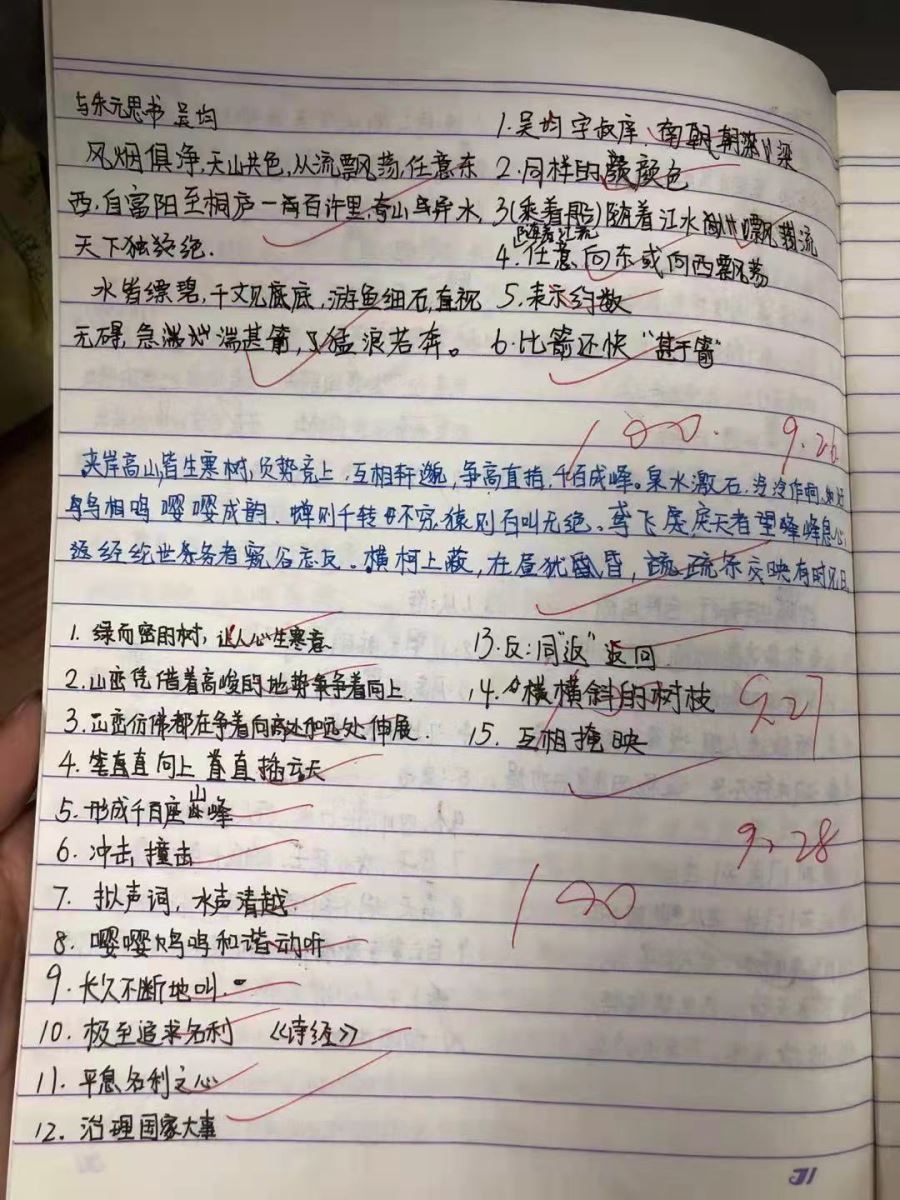 与朱元思书 吴均
风烟俱净,天山共色,从流飘荡,任意东
西.自富阳至桐庐一百百许里,奇山异水,
天下独绝.
水皆缥碧,千丈见底,游鱼细石,直视
无碍,急湍甚箭,猛浪若奔。
1.吴均字叔庠、南朝梁
2.同样的颜色
3(乘着船)随着江水飘荡
随着江流
4.任意向东或向西飘荡
5.表示约数
6.比箭还快"甚于箭"
100.
9.22
夹岸高山,皆生寒树,负势竞上,互相轩邈,争高直指,千百成峰。泉水激石,泠泠作响,好
鸟相鸣 嘤嘤成韵.蝉则千转不穷,猿则百叫无绝。鸢飞戾天者望峰息心,
经纶世务者窥谷忘反。横柯上蔽,在昼犹昏,疏条交映有时见日
1.绿而密的树,让人心生寒意
2.山峦凭借着高峻的地势争着向上.
3.山峦仿佛都在争着向高处和远处伸展.
4.笔直向上 直插云天
5.形成千百座山峰
6.冲击,撞击
7.拟声词,水声清越.
8.嘤嘤鸣和谐动听
9.长久不断地叫.
10.极至追求名利 《诗经》
11.平息名利之心
12.治理国家大事
13.反:同"返"返回.
14.横斜的树枝
15.互相掩映
9.27
9.28
100
31